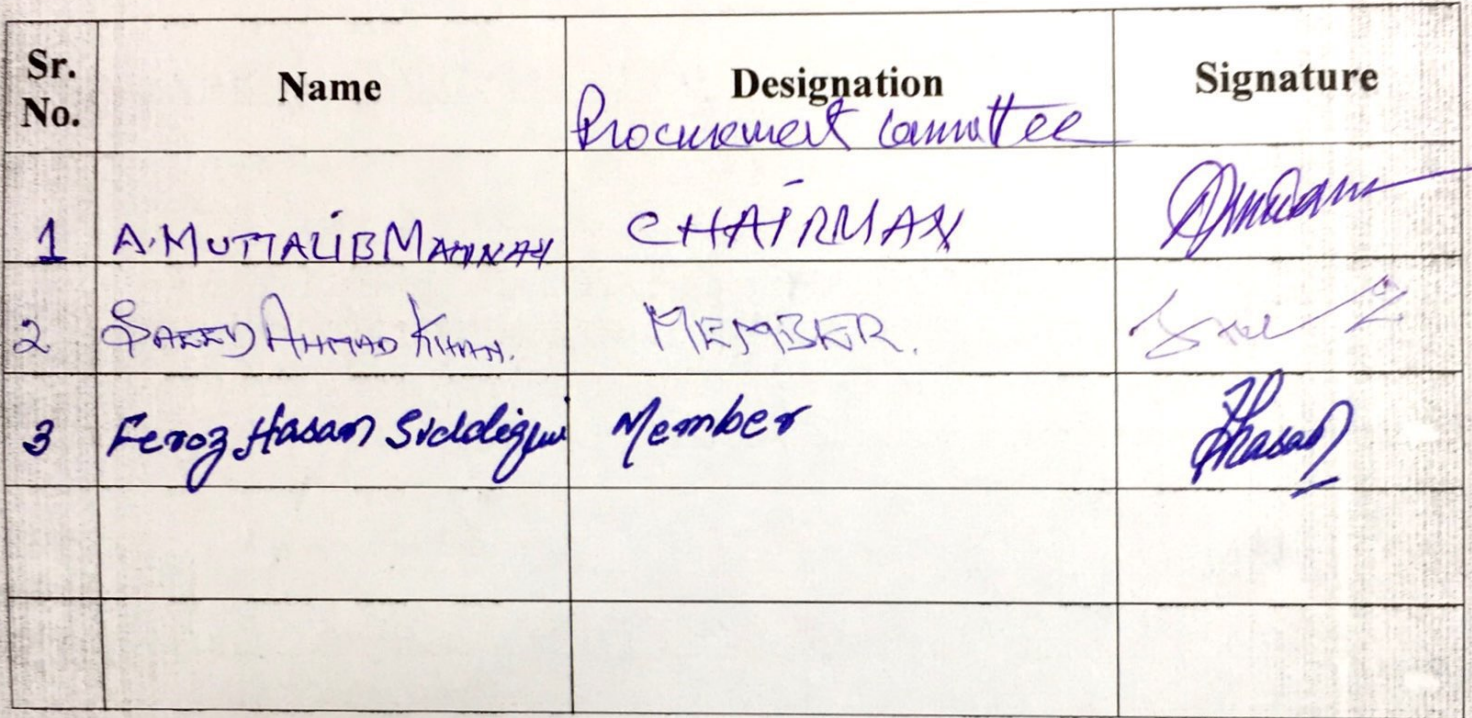 Sr. No. Name Designation Signature
Procurement Committee
1 A. MUTTALIB MANNAN CHAIRMAN
2 SAEED AHMAD KHAN. MEMBER.
3 Feroz Hasan Siddiqui Member